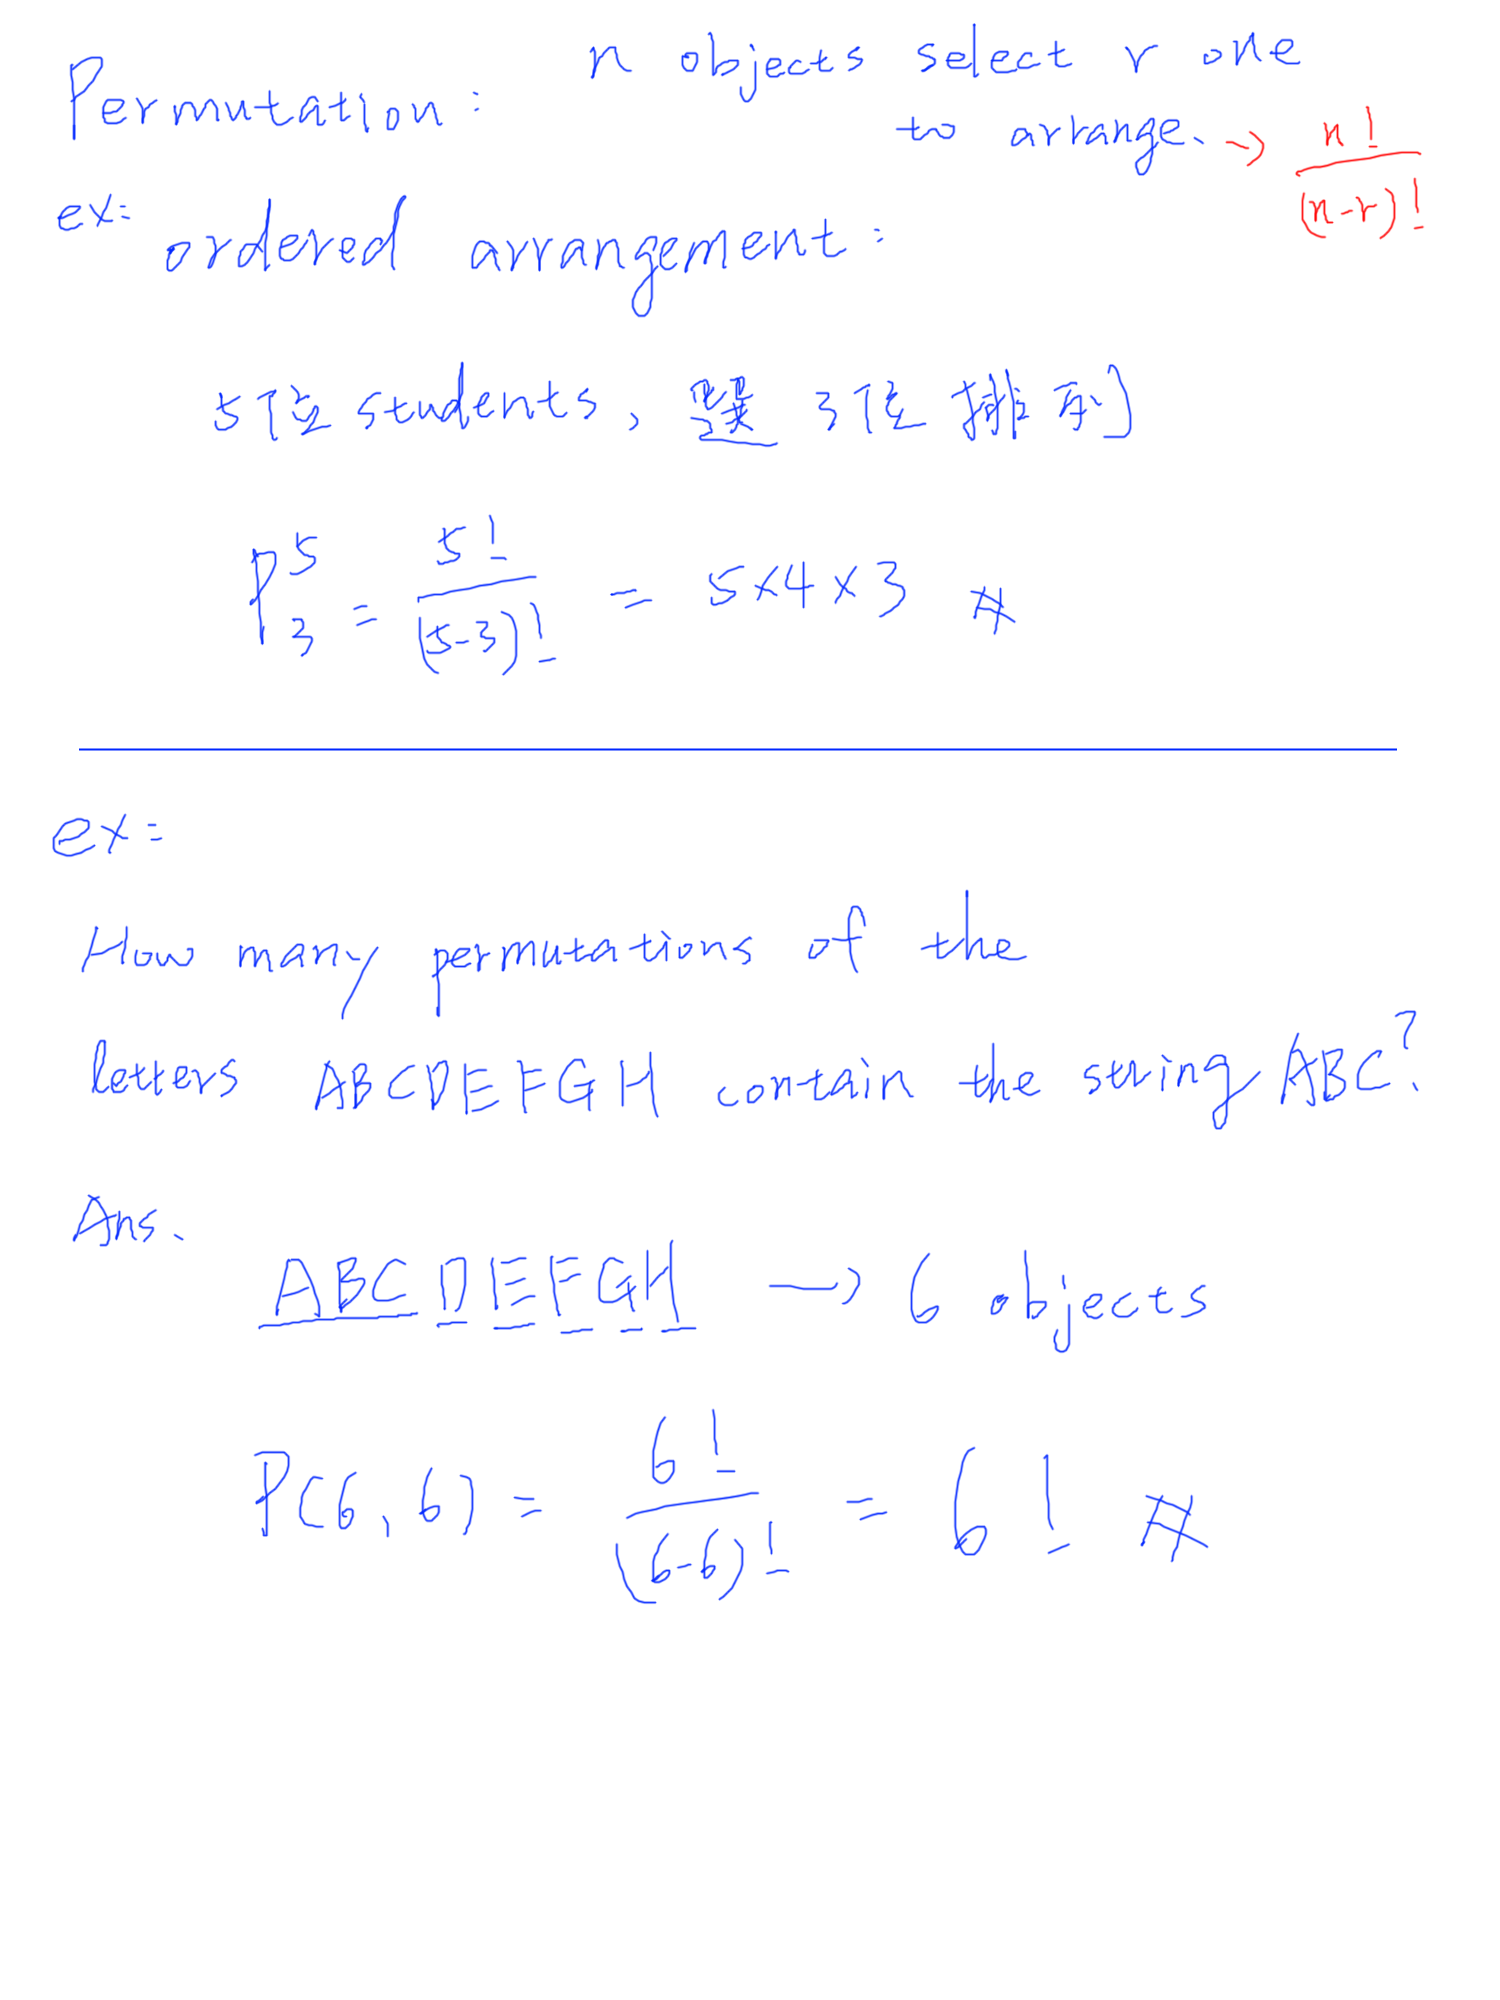 Permutation: n objects select r one
to arrange. → n! / (n-r)!
ex: ordered arrangement:
5位 students, 選 3位 排列
P^5_3 = 5! / (5-3)! = 5×4×3 #
ex:
How many permutations of the
letters ABCDEFGH contain the string ABC?
Ans.
ABC D E F G H → 6 objects
P(6,6) = 6! / (6-6)! = 6! #